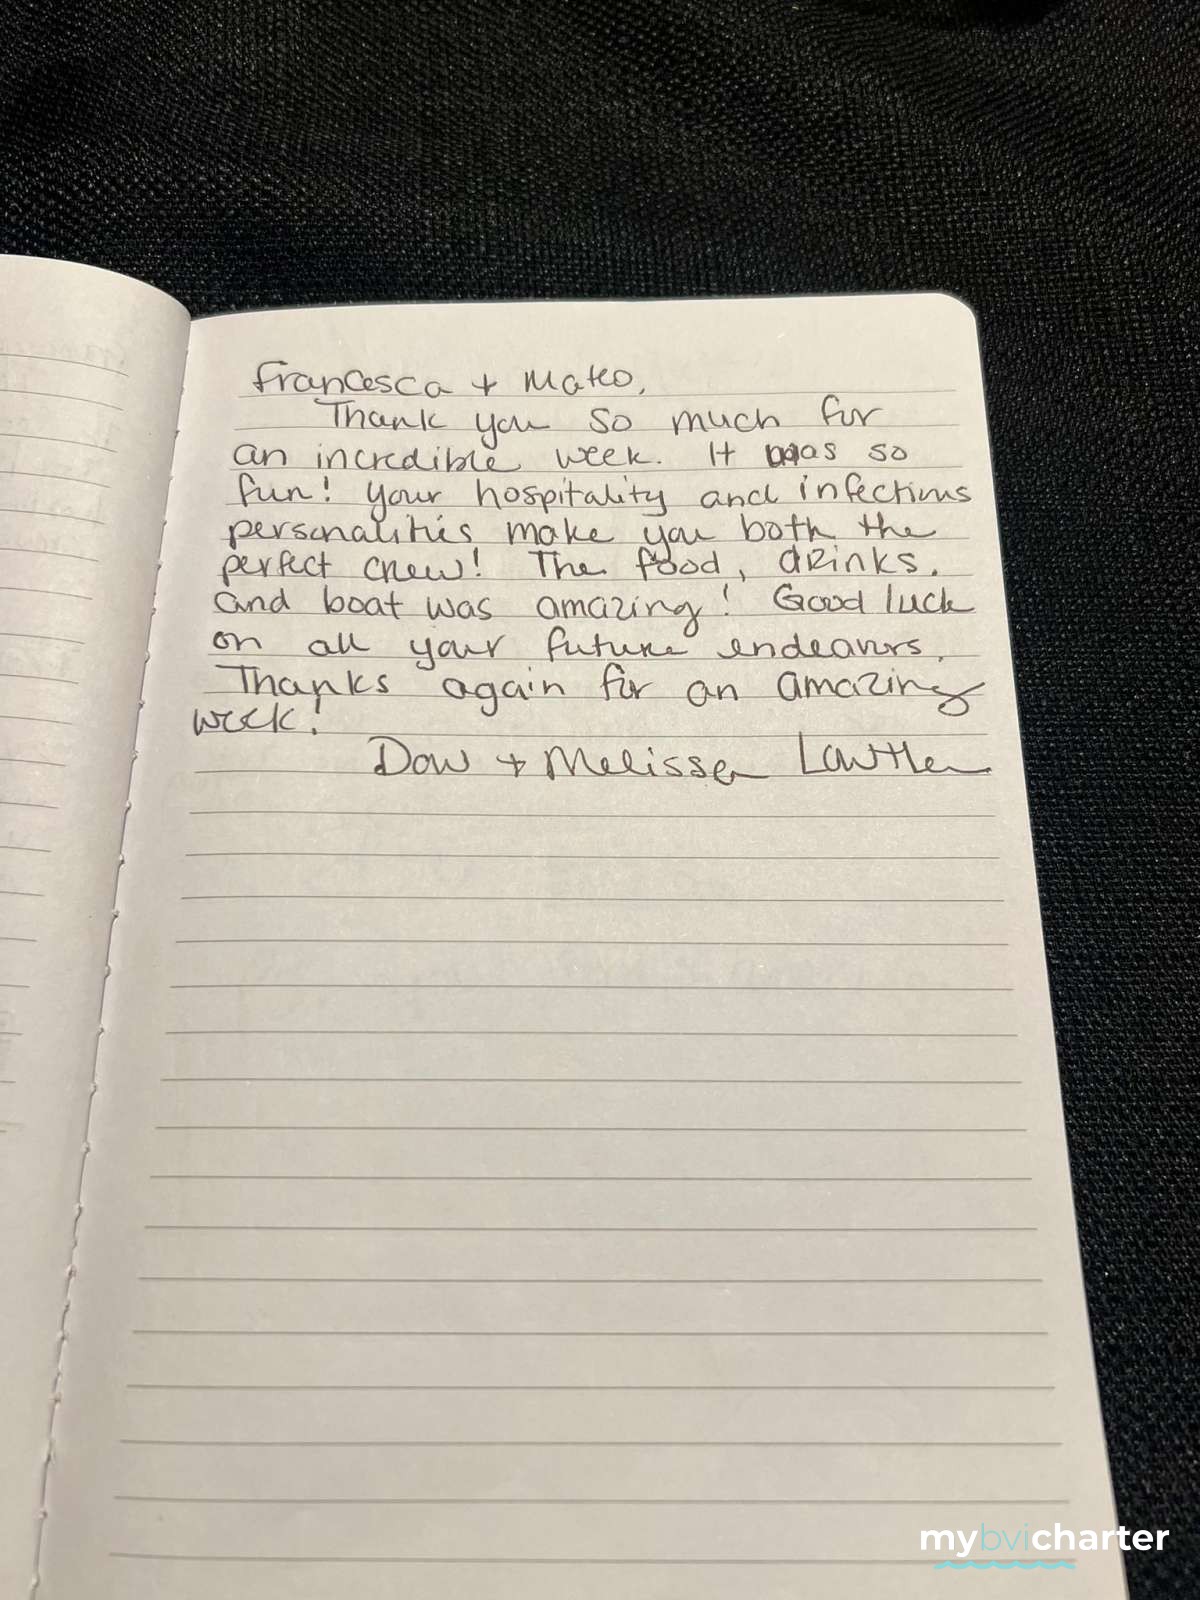 Francesca + Mateo,
Thank you so much for
an incredible week. It was so
fun! Your hospitality and infectious
personalities make you both the
perfect crew! The food, drinks,
and boat was amazing! Good luck
on all your future endeavors.
Thanks again for an amazing
week!
Dow + Melissa
mybvicharter